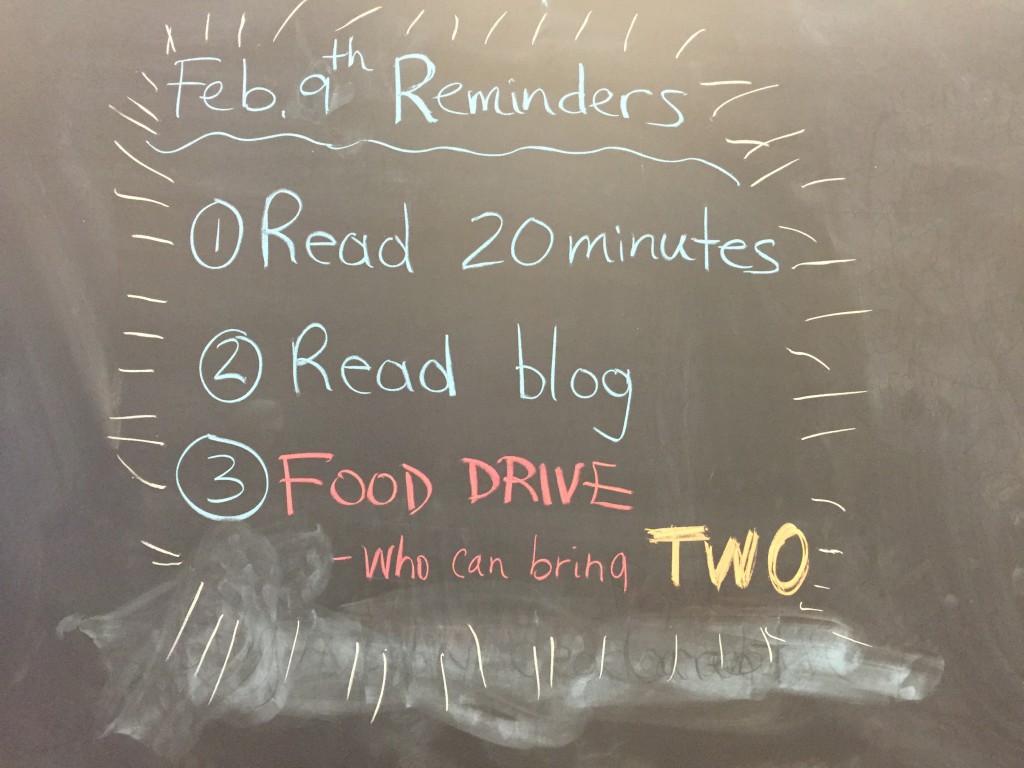 Feb. 9th Reminders
① Read 20 minutes
② Read blog
③ FOOD DRIVE
- Who can bring TWO